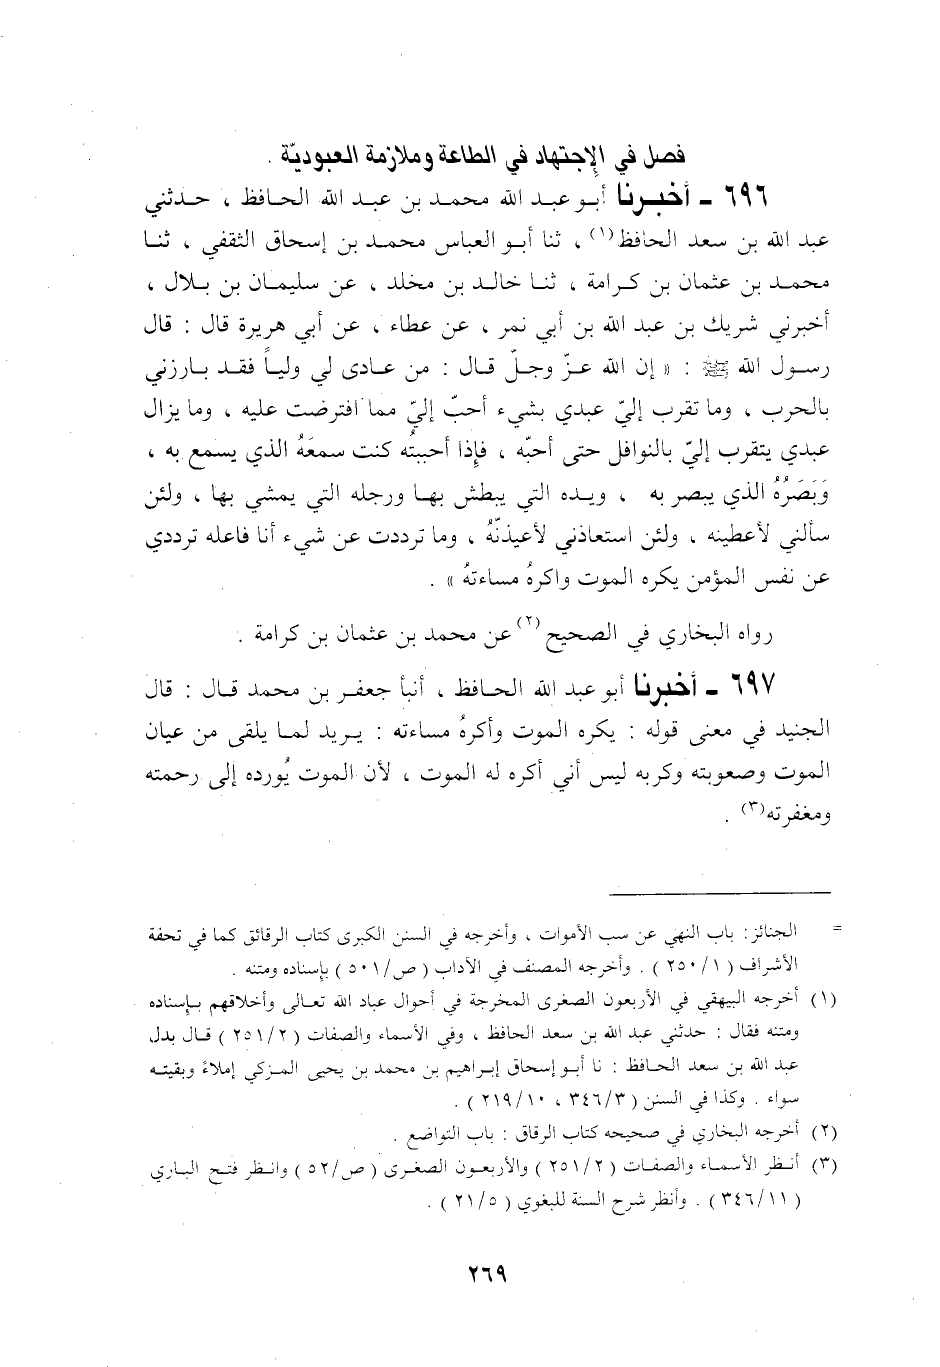 فصل في الإجتهاد في الطاعة وملازمة العبوديّة .
٦٩٦ - أخبرنا أبو عبد الله محمد بن عبد الله الحافظ ، حدثني
عبد الله بن سعد الحافظ(١) ، ثنا أبو العباس محمد بن إسحاق الثقفي ، ثنا
محمد بن عثمان بن كرامة ، ثنا خالد بن مخلد ، عن سليمان بن بلال ،
أخبرني شريك بن عبد الله بن أبي نمر ، عن عطاء ، عن أبي هريرة قال : قال
رسول الله ﷺ : « إن الله عزّ وجلّ قال : من عادى لي ولياً فقد بارزني
بالحرب ، وما تقرب إليّ عبدي بشيء أحبّ إليّ مما افترضت عليه ، وما يزال
عبدي يتقرب إليّ بالنوافل حتى أحبّه ، فإذا أحببتُه كنت سمعَهُ الذي يسمع به ،
وَبَصَرُهُ الذي يبصر به ، ويده التي يبطش بها ورجله التي يمشي بها ، ولئن
سألني لأعطينه ، ولئن استعاذني لأعيذنّهُ ، وما ترددت عن شيء أنا فاعله ترددي
عن نفس المؤمن يكره الموت واكرهُ مساءتهُ » .
رواه البخاري في الصحيح(٢) عن محمد بن عثمان بن كرامة .
٦٩٧ - أخبرنا أبو عبد الله الحافظ ، أنبأ جعفر بن محمد قال : قال
الجنيد في معنى قوله : يكره الموت وأكرهُ مساءته : يريد لما يلقى من عيان
الموت وصعوبته وكربه ليس أني أكره له الموت ، لأن الموت يُورده إلى رحمته
ومغفرته(٣) .
= الجنائز: باب النهي عن سب الأموات ، وأخرجه في السنن الكبرى كتاب الرقائق كما في تحفة
الأشراف ( ٢٥٠/١ ) . وأخرجه المصنف في الآداب ( ص/٥٠١ ) بإسناده ومتنه .
(١) أخرجه البيهقي في الأربعون الصغرى المخرجة في أحوال عباد الله تعالى وأخلاقهم بإسناده
ومتنه فقال : حدثني عبد الله بن سعد الحافظ ، وفي الأسماء والصفات ( ٢٥١/٢ ) قال بدل
عبد الله بن سعد الحافظ : نا أبو إسحاق إبراهيم بن محمد بن يحيى المزكي إملاءً وبقيته
سواء . وكذا في السنن ( ٣٤٦/٣ ، ٢١٩/١٠ ) .
(٢) أخرجه البخاري في صحيحه كتاب الرقاق : باب التواضع .
(٣) أنظر الأسماء والصفات ( ٢٥١/٢ ) والأربعون الصغرى ( ص/٥٢ ) وانظر فتح الباري
( ٣٤٦/١١ ) . وأنظر شرح السنة للبغوي ( ٢١/٥ ) .
٢٦٩